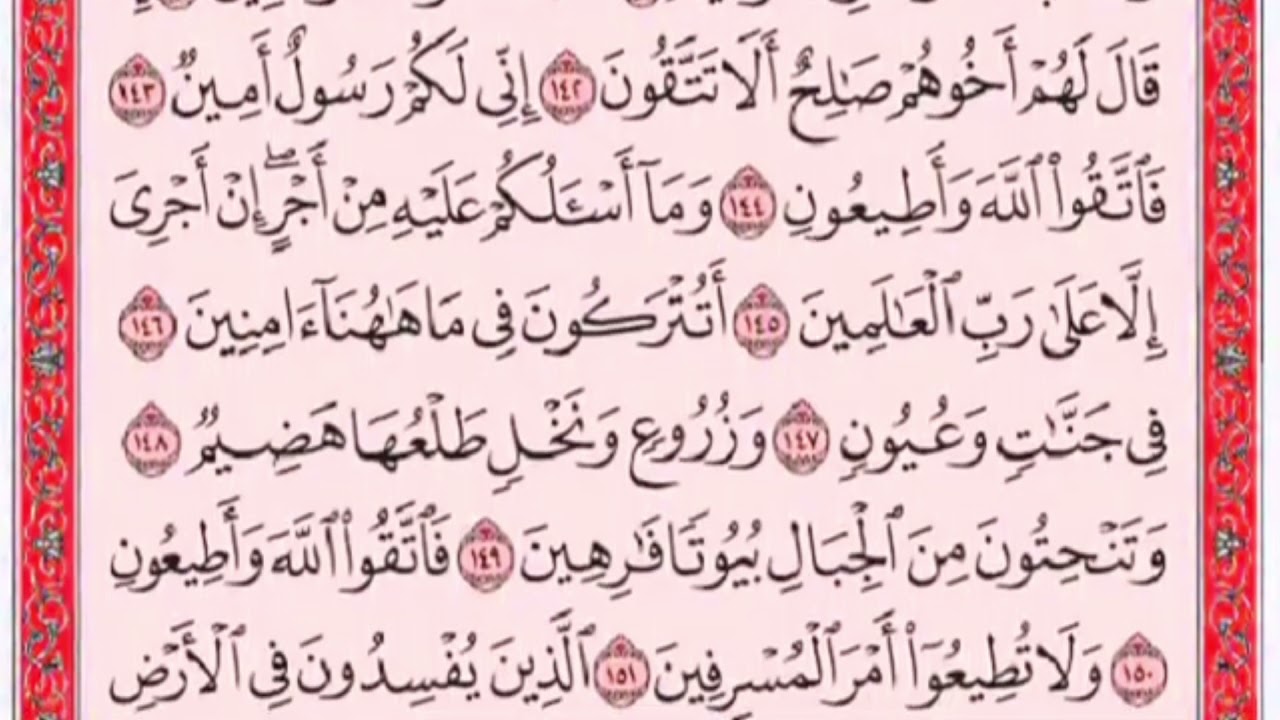 قَالَ لَهُمْ أَخُوهُمْ صَٰلِحٌ أَلَا تَتَّقُونَ ١٤٢ إِنِّي لَكُمْ رَسُولٌ أَمِينٌ ١٤٣
فَٱتَّقُوا۟ ٱللَّهَ وَأَطِيعُونِ ١٤٤ وَمَآ أَسْـَٔلُكُمْ عَلَيْهِ مِنْ أَجْرٍ ۖ إِنْ أَجْرِىَ
إِلَّا عَلَىٰ رَبِّ ٱلْعَٰلَمِينَ ١٤٥ أَتُتْرَكُونَ فِى مَا هَٰهُنَآ ءَامِنِينَ ١٤٦
فِى جَنَّٰتٍ وَعُيُونٍ ١٤٧ وَزُرُوعٍ وَنَخْلٍ طَلْعُهَا هَضِيمٌ ١٤٨
وَتَنْحِتُونَ مِنَ ٱلْجِبَالِ بُيُوتًا فَٰرِهِينَ ١٤٩ فَٱتَّقُوا۟ ٱللَّهَ وَأَطِيعُونِ
١٥٠ وَلَا تُطِيعُوٓا۟ أَمْرَ ٱلْمُسْرِفِينَ ١٥١ ٱلَّذِينَ يُفْسِدُونَ فِى ٱلْأَرْضِ